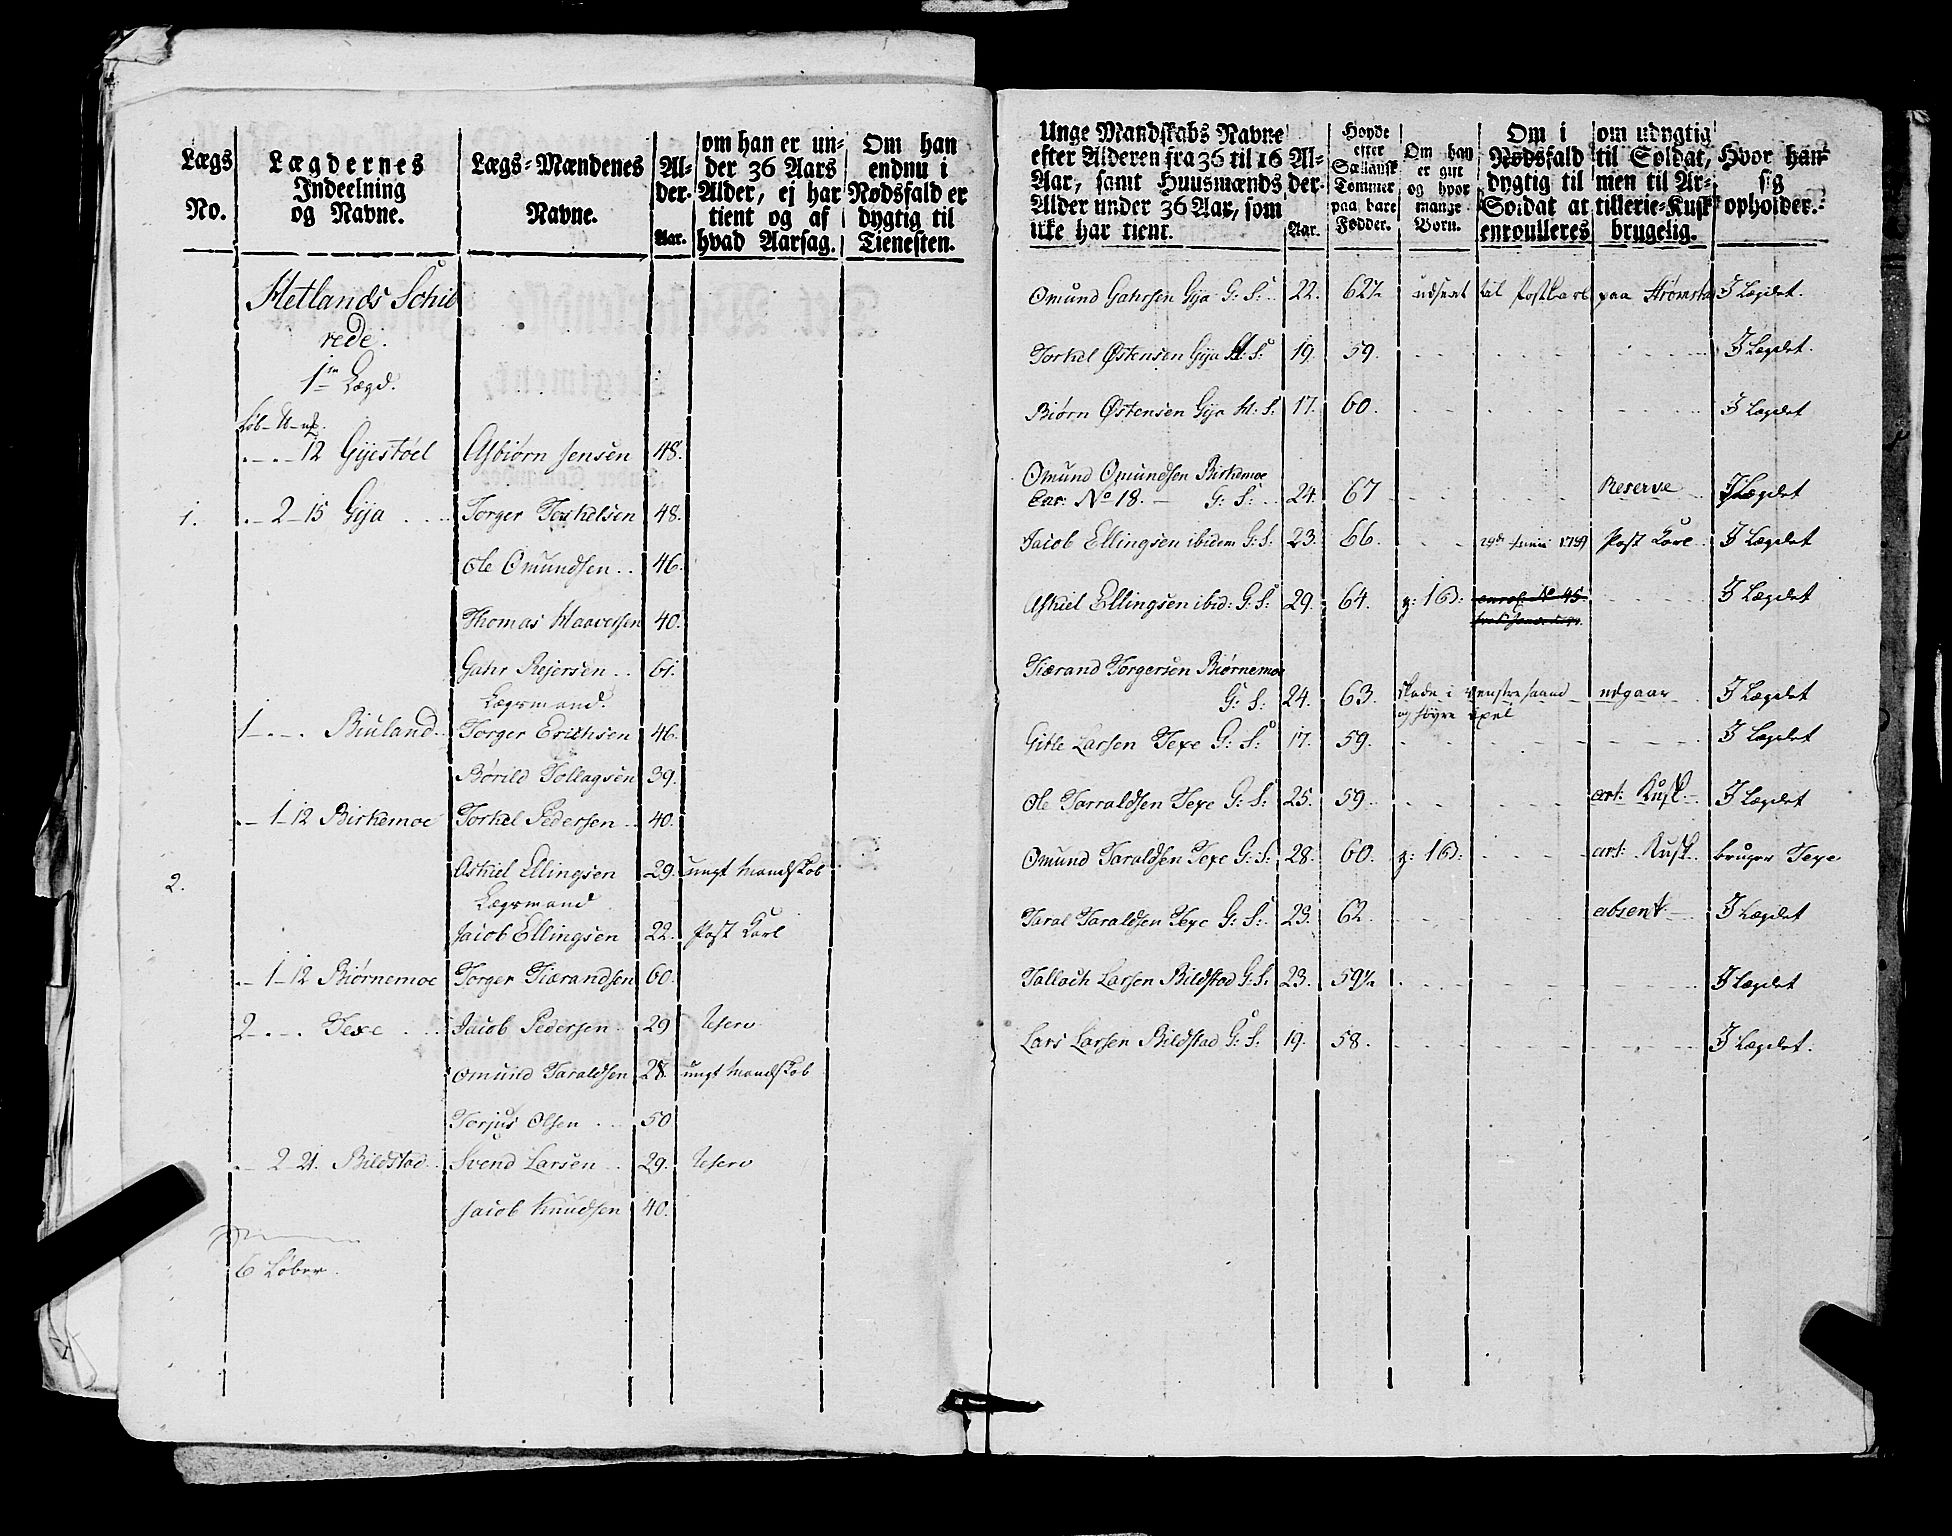 Lægs No.
Lægdernes Indeelning og Navne.
Lægs-Mændenes Navne.
Al-der. Aar.
om han er un-der 36 Aars Alder, ej har tient og af hvad Aarsag.
Om han endnu i Nødsfald er dygtig til Tienesten.
Hetlands Schib
rede.
1ste Lægd.
12 Gyestøel Asbiørn Jensen 48.
1. 2-15 Gya Torger Torkelsen 48.
Ole Omundsen 46.
Thomas Haaversen 40.
Gahr Rejersen 61.
Lægsmand.
1 Biuland Torger Erichsen 46.
Børild Tollagsen 39.
1-12 Birkemoe Torkel Pedersen 40.
2. Askiel Ellingsen 29. ungt Mandskob
Lægsmand
Jacob Ellingsen 22. Post Karl
1-12 Biørnemoe Torger Tiærandsen 60.
2 Texe Jacob Pedersen 29
Omund Taraldsen 28. ungt Mandskob
Torjus Olsen 50
2-21. Bildstad Svend Larsen 29.
Jacob Knudsen 40.
6 Løber
Unge Mandskabs Navne efter Alderen fra 36 til 16 Aar, samt Huusmænds Alder under 36 Aar, som ikke har tient.
Al-der. Aar.
Høyde efter Sællandsk Tommer paa bare Fødder.
Om han er gift og hvor mange Børn.
Om i Nødsfald dygtig til Soldat at enroulleres
om udygtig til Soldat, men til Ar-tillerie-Kusk brugelig.
Hvor han sig opholder.
Omund Gahrsen Gya G: S: 22. 62½ udsent til Postkarl paa I Lægdet.
Torkel Østensen Gya H: S: 19. 59. I Lægdet.
Biørn Østensen Gya H: S: 17. 60. I Lægdet
Omund Omundsen Birkemoe
No 18. G: S: 24. 67 Reserve I Lægdet
Jacob Ellingsen ibidem G: S: 23. 66. Post Karl I Lægdet
Askiel Ellingsen ibid: G: S: 29. 64. g: 1 B: enrol: No 45 I Lægdet
Tiærand Torgersen Biørnemoe
G: S: 24. 63. skade i venstre haand udgaar I Lægdet
og
Gitle Larsen Texe G: S: 17. 59. I Lægdet
Ole Tarraldsen Texe G: S: 25. 59. art: Kusk I Lægdet
Omund Taraldsen Texe G: S: 28. 60. g: 1 B: art: Kusk bruger Texe
Taral Taraldsen Texe G: S: 23. 62. absent I Lægdet
Tallach Larsen Bildstad G: S: 23. 59½ I Lægdet
Lars Larsen Bildstad G: S: 19. 58. I Lægdet.